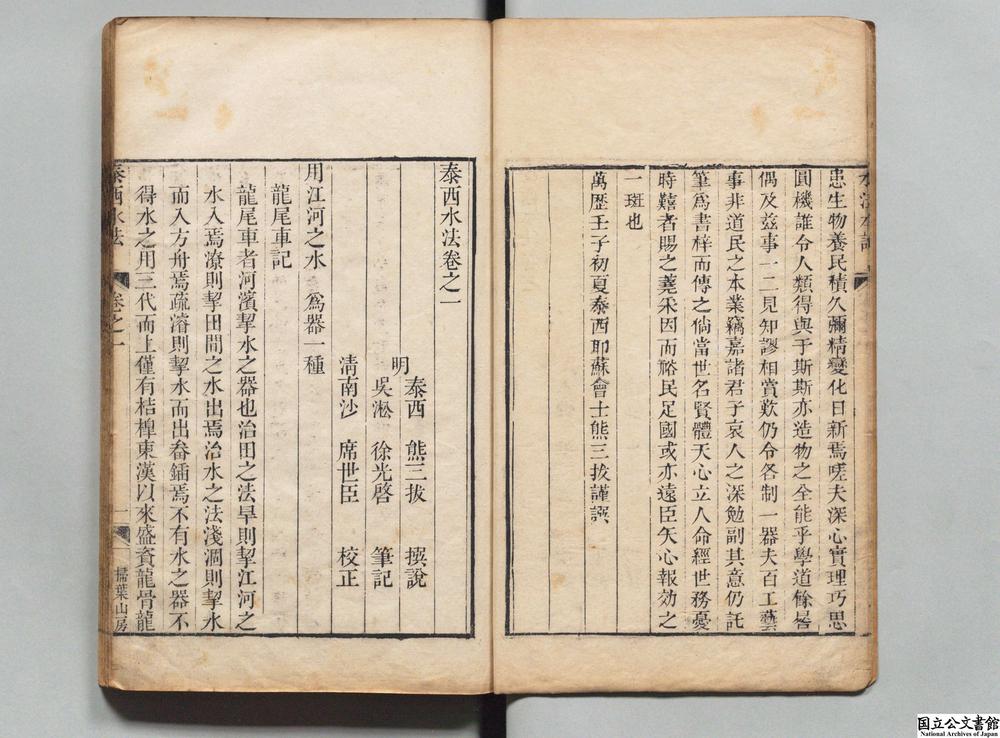 水法本論
恵生物養民積久彌精變化日新焉嗟夫深心實理巧思
圓機誰令人類得與于斯斯亦造物之全能乎學道餘晷
偶及玆事一二見知謬相賞歎仍令各制一器夫百工藝
事非道民之本業竊嘉諸君子哀人之深勉副其意仍託
筆爲書梓而傳之倘當世名賢體天心立人命經世務憂
時囏者賜之蕘采因而裕民足國或亦遠臣矢心報効之
一斑也
萬歷壬子初夏泰西耶蘇會士熊三拔謹譔
泰西水法卷之一
泰西 熊三拔 撰說
明
吳淞 徐光啓 筆記
淸南沙 席世臣 校正
用江河之水 爲器一種
龍尾車記
龍尾車者河濱挈水之器也治田之法旱則挈江河之
水入焉潦則挈田間之水出焉治水之法淺涸則挈水
而入方舟焉疏濬則挈水而出畚鍤焉不有水之器不
得水之用三代而上僅有桔橰東漢以來盛資龍骨龍
泰西水法
卷之一
一
掃葉山房
国立公文書館
National Archives of Japan